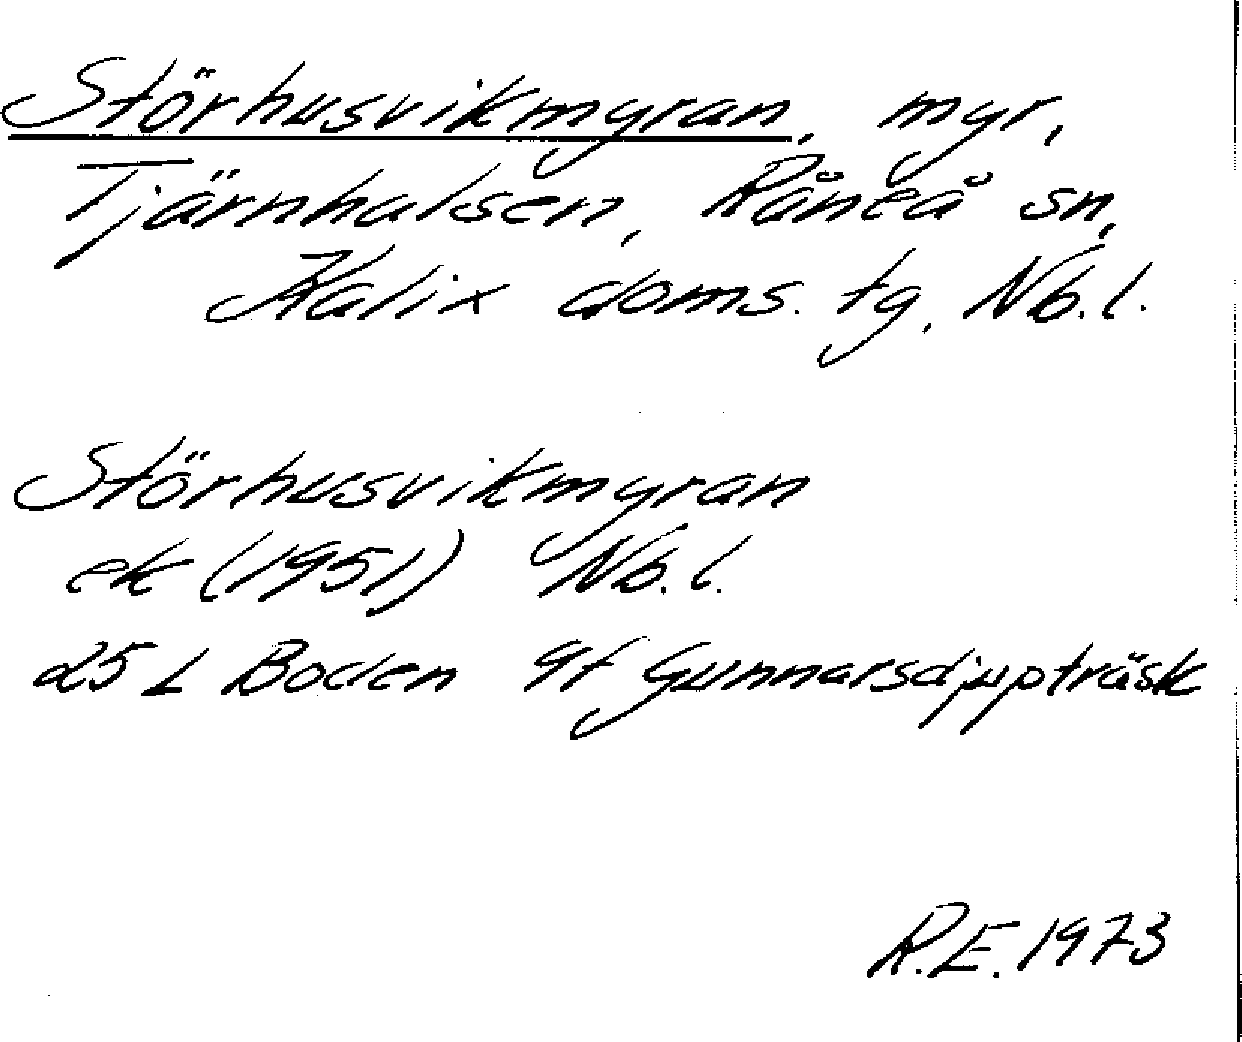 Störhusvikmyran, myr,
Tjärnhulsen, Råneå sn,
Kalix doms. tg, Nb. l.
Störhusvikmyran
ek (1951) Nb. l.
25 L Boden 9f Gunnarsdjupträsk
R.E. 1973